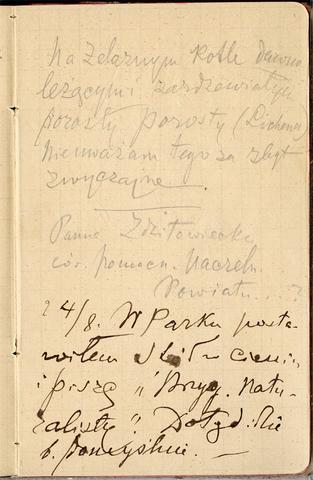 Na żelaznym kotle dawno
leżącym i zardzewiałym
porosły porosty (Lichenes)
Nie uważam tego za zbyt
zwyczajne.
Panna Zdzitowiecka
cór. pomocn. Naczeln.
Powiatu...?
24/8. W Parku posta-
wiłem stół w cieniu
i piszę „Przyg. Natu-
ralisty". Dotąd idzie
b. pomyślnie. —